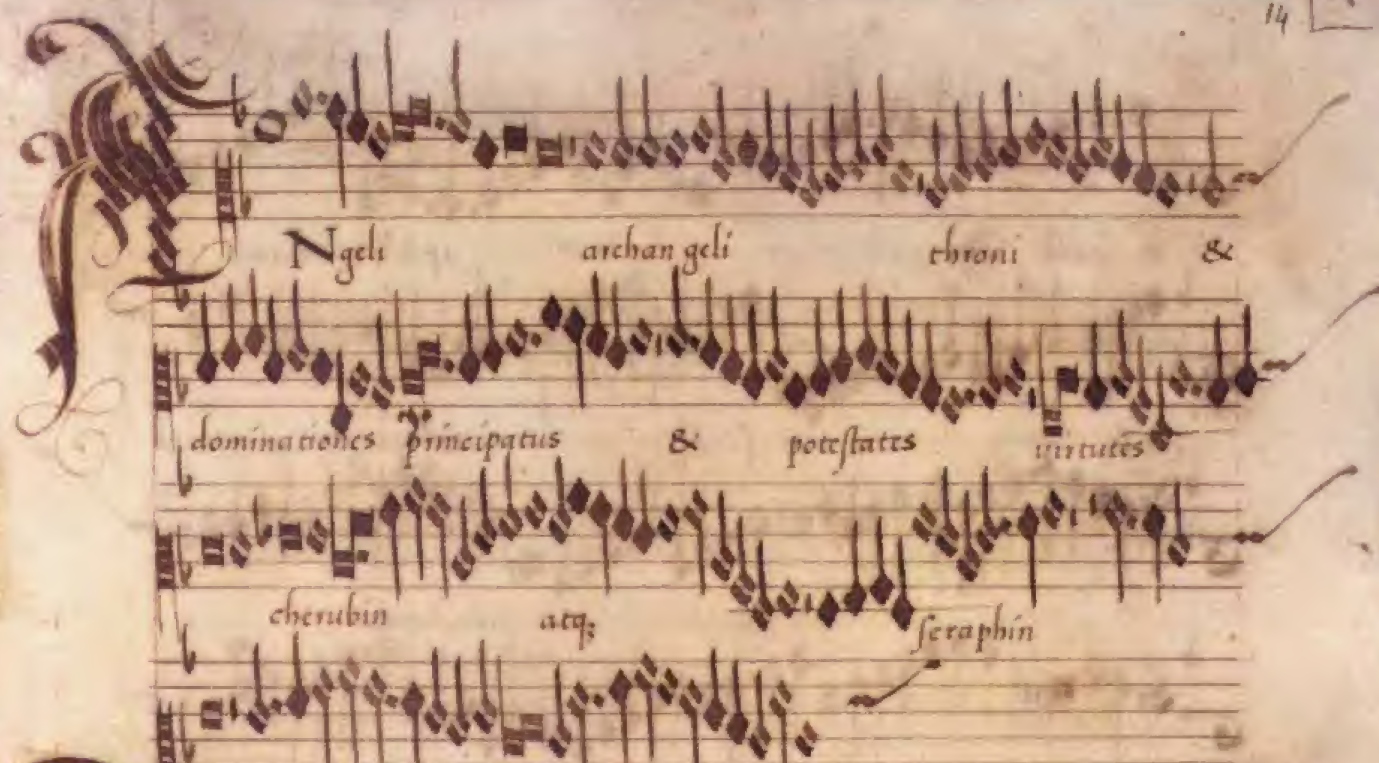 14
ANgeli archan geli throni &
dominationes principatus & potestates virtutes
cherubin atq; seraphin